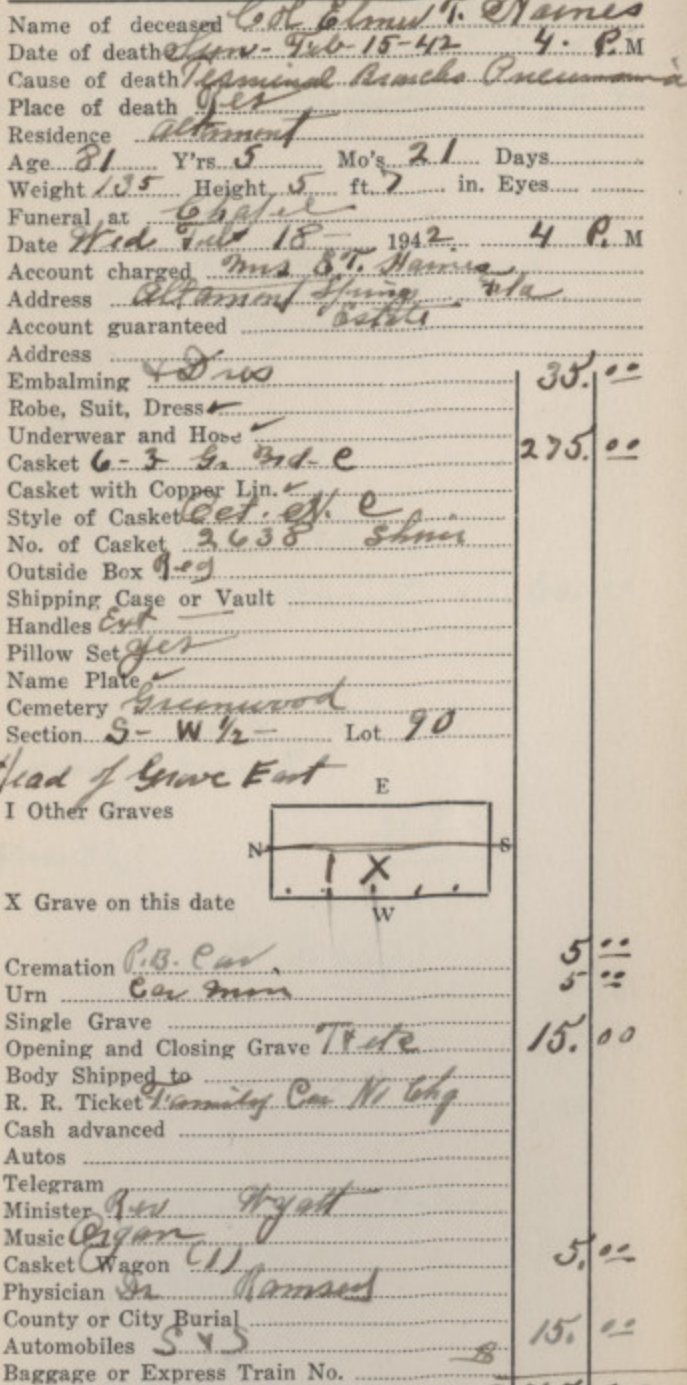 Name of deceased Col Elmer T. Haines
Date of death Sun - Feb - 15-42 4. P.M
Cause of death Terminal Broncho Pneumonia
Place of death Res
Residence Altamont
Age 81 Y'rs 5 Mo's 21 Days
Weight 135 Height 5 ft. 7 in. Eyes
Funeral at Chapel
Date Wed Feb 18 - 1942. 4 P. M
Account charged Mrs E.T. Haines
Address Altamont Spring Fla
Account guaranteed Estate
Address
Embalming & Dres 35.00
Robe, Suit, Dress ✓
Underwear and Hose ✓
Casket 6-3 Gr. Brd- C 275.00
Casket with Copper Lin. ✓
Style of Casket Oct. C
No. of Casket 2638
Outside Box Reg
Shipping Case or Vault
Handles Ext
Pillow Set yes
Name Plate ✓
Cemetery Greenwood
Section S- W 1/2 - Lot 90
Head of Grave East
E
I Other Graves
N S
I X
X Grave on this date
W
Cremation P.B. Car 5.00
Urn 5.00
Single Grave
Opening and Closing Grave 15.00
Body Shipped to
R. R. Ticket Family Car No Chg
Cash advanced
Autos
Telegram
Minister Rev Wyatt
Music Organ
Casket Wagon (1) 5.00
Physician Dr
County or City Burial
Automobiles S & S 15.00
Baggage or Express Train No.